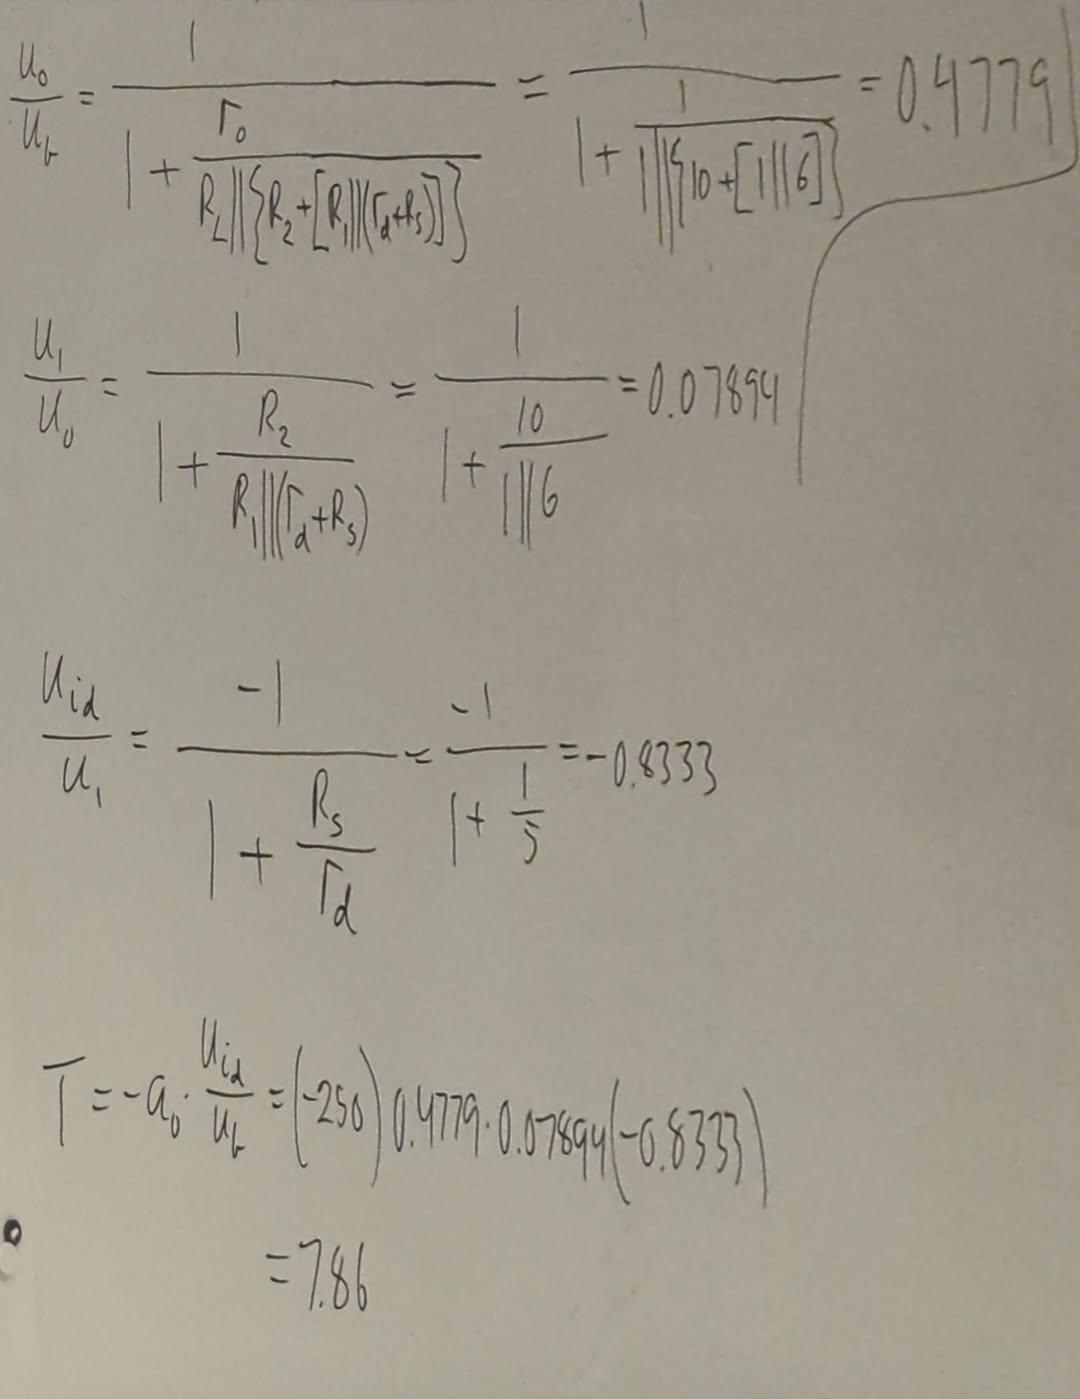 u₀/uₜ = 1/(1 + r₀/(R_L||{R₂+[R₁||(r_d+R_s)]})) = 1/(1 + 1/(1||{10+[1||6]})) = 0.4779
u₁/u₀ = 1/(1 + R₂/(R₁||(r_d+R_s))) = 1/(1 + 10/(1||6)) = 0.07894
u_id/u₁ = -1/(1 + R_s/r_d) = -1/(1 + 1/5) = -0.8333
T = -a₀·u_id/uₜ = (-250)0.4779·0.07894(-0.8333)
= 7.86